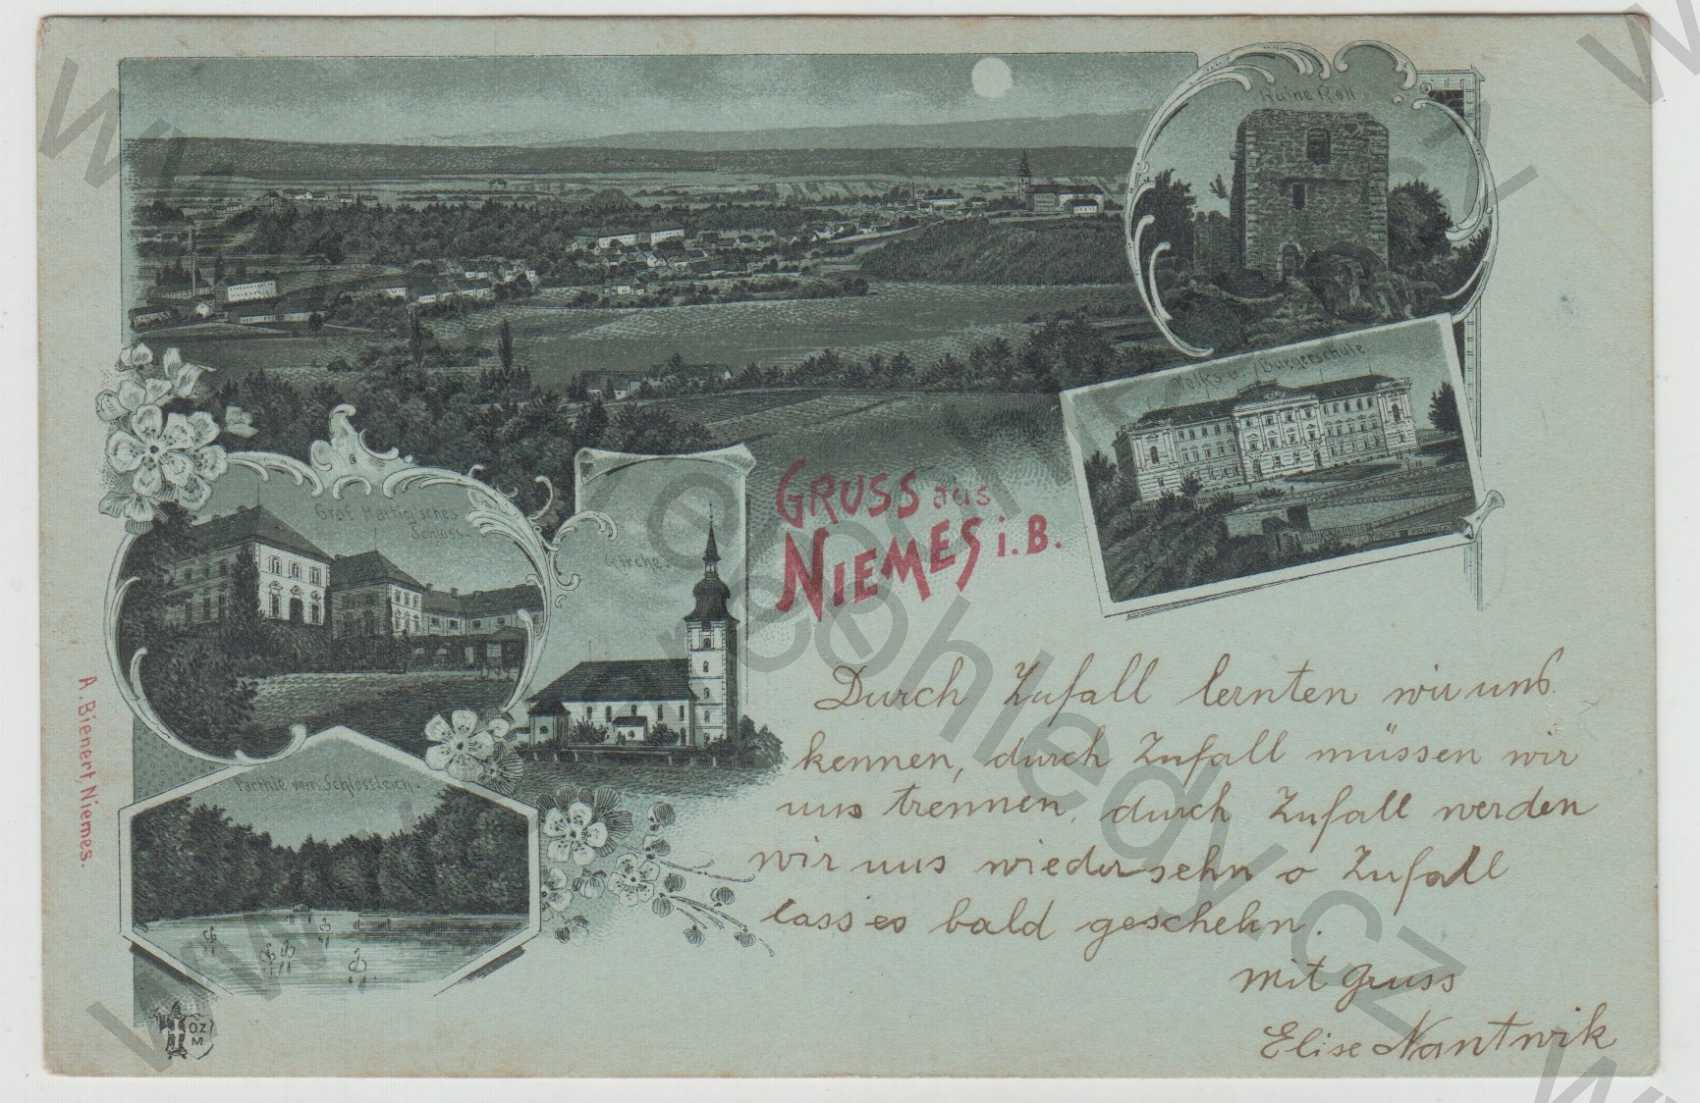 Ruine Roll
Volks- u. Bürgerschule
Graf Hartig'sches
Schloss.
Kirche.
GRUSS aus
NIEMES i. B.
Parthie vom Schlossteich.
A. Bienert, Niemes.
OZ
M
Durch Zufall lernten wir uns
kennen, durch Zufall müssen wir
uns trennen, durch Zufall werden
wir uns wiedersehn o Zufall
lass es bald geschehn.
Mit Gruss
Elise Nantwik
www.pohledy.cz